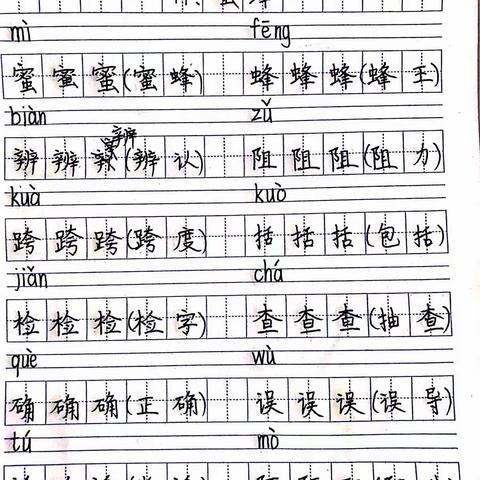 mì fēng
蜜 蜜 蜜(蜜 蜂) 蜂 蜂 蜂(蜂 王)
biàn zǔ
辨
辨 辨 (辨 认) 阻 阻 阻(阻 力)
kuà kuò
跨 跨 跨(跨 度) 括 括 括(包 括)
jiǎn chá
检 检 检(检 字) 查 查 查(抽 查)
què wù
确 确 确(正 确) 误 误 误(误 导)
tú mò